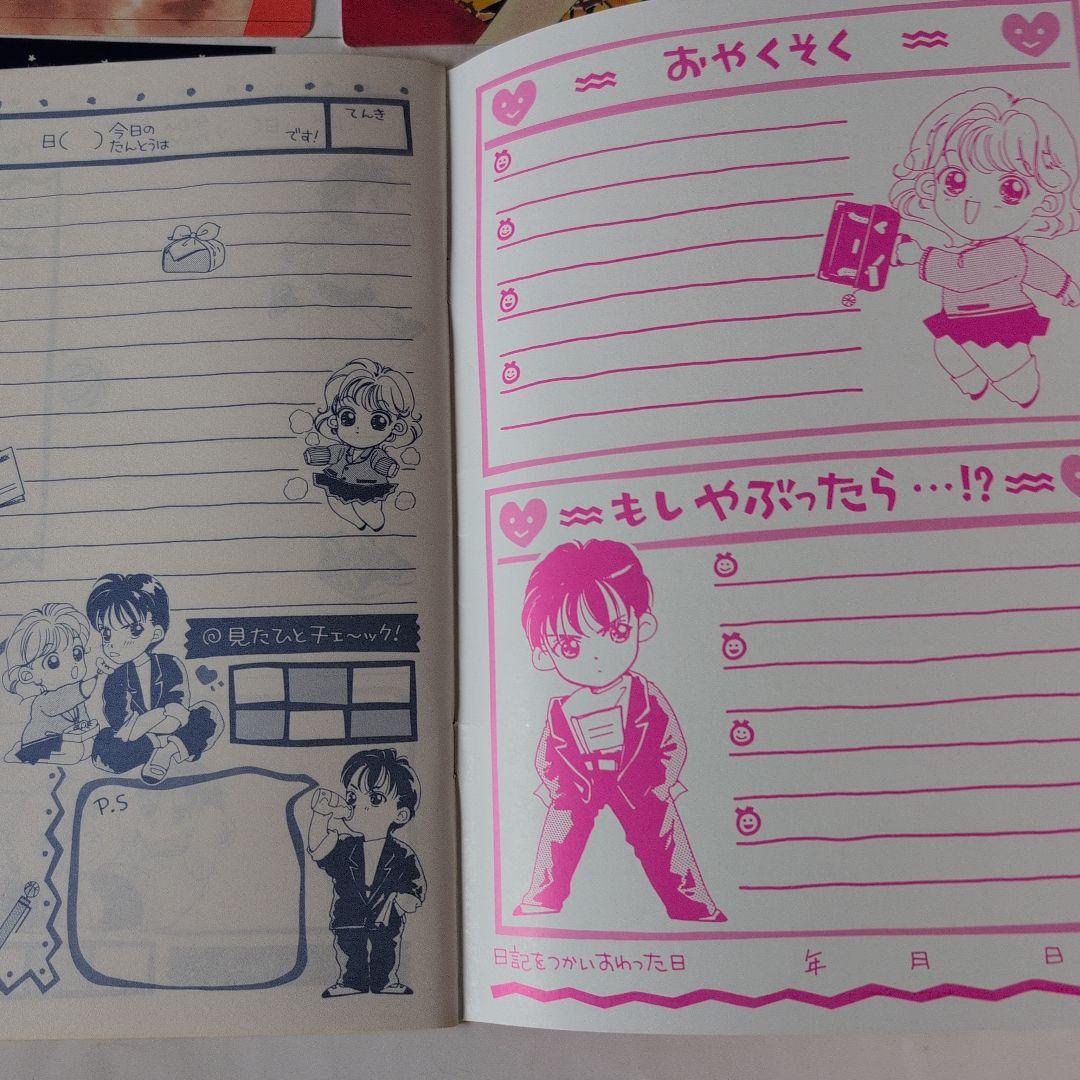 日( ) 今日の
たんとうは です!
てんき
◎見たひとチェ〜ック!
P.S
おやくそく
もしやぶったら…!?
日記をつかいおわった日 年 月 日